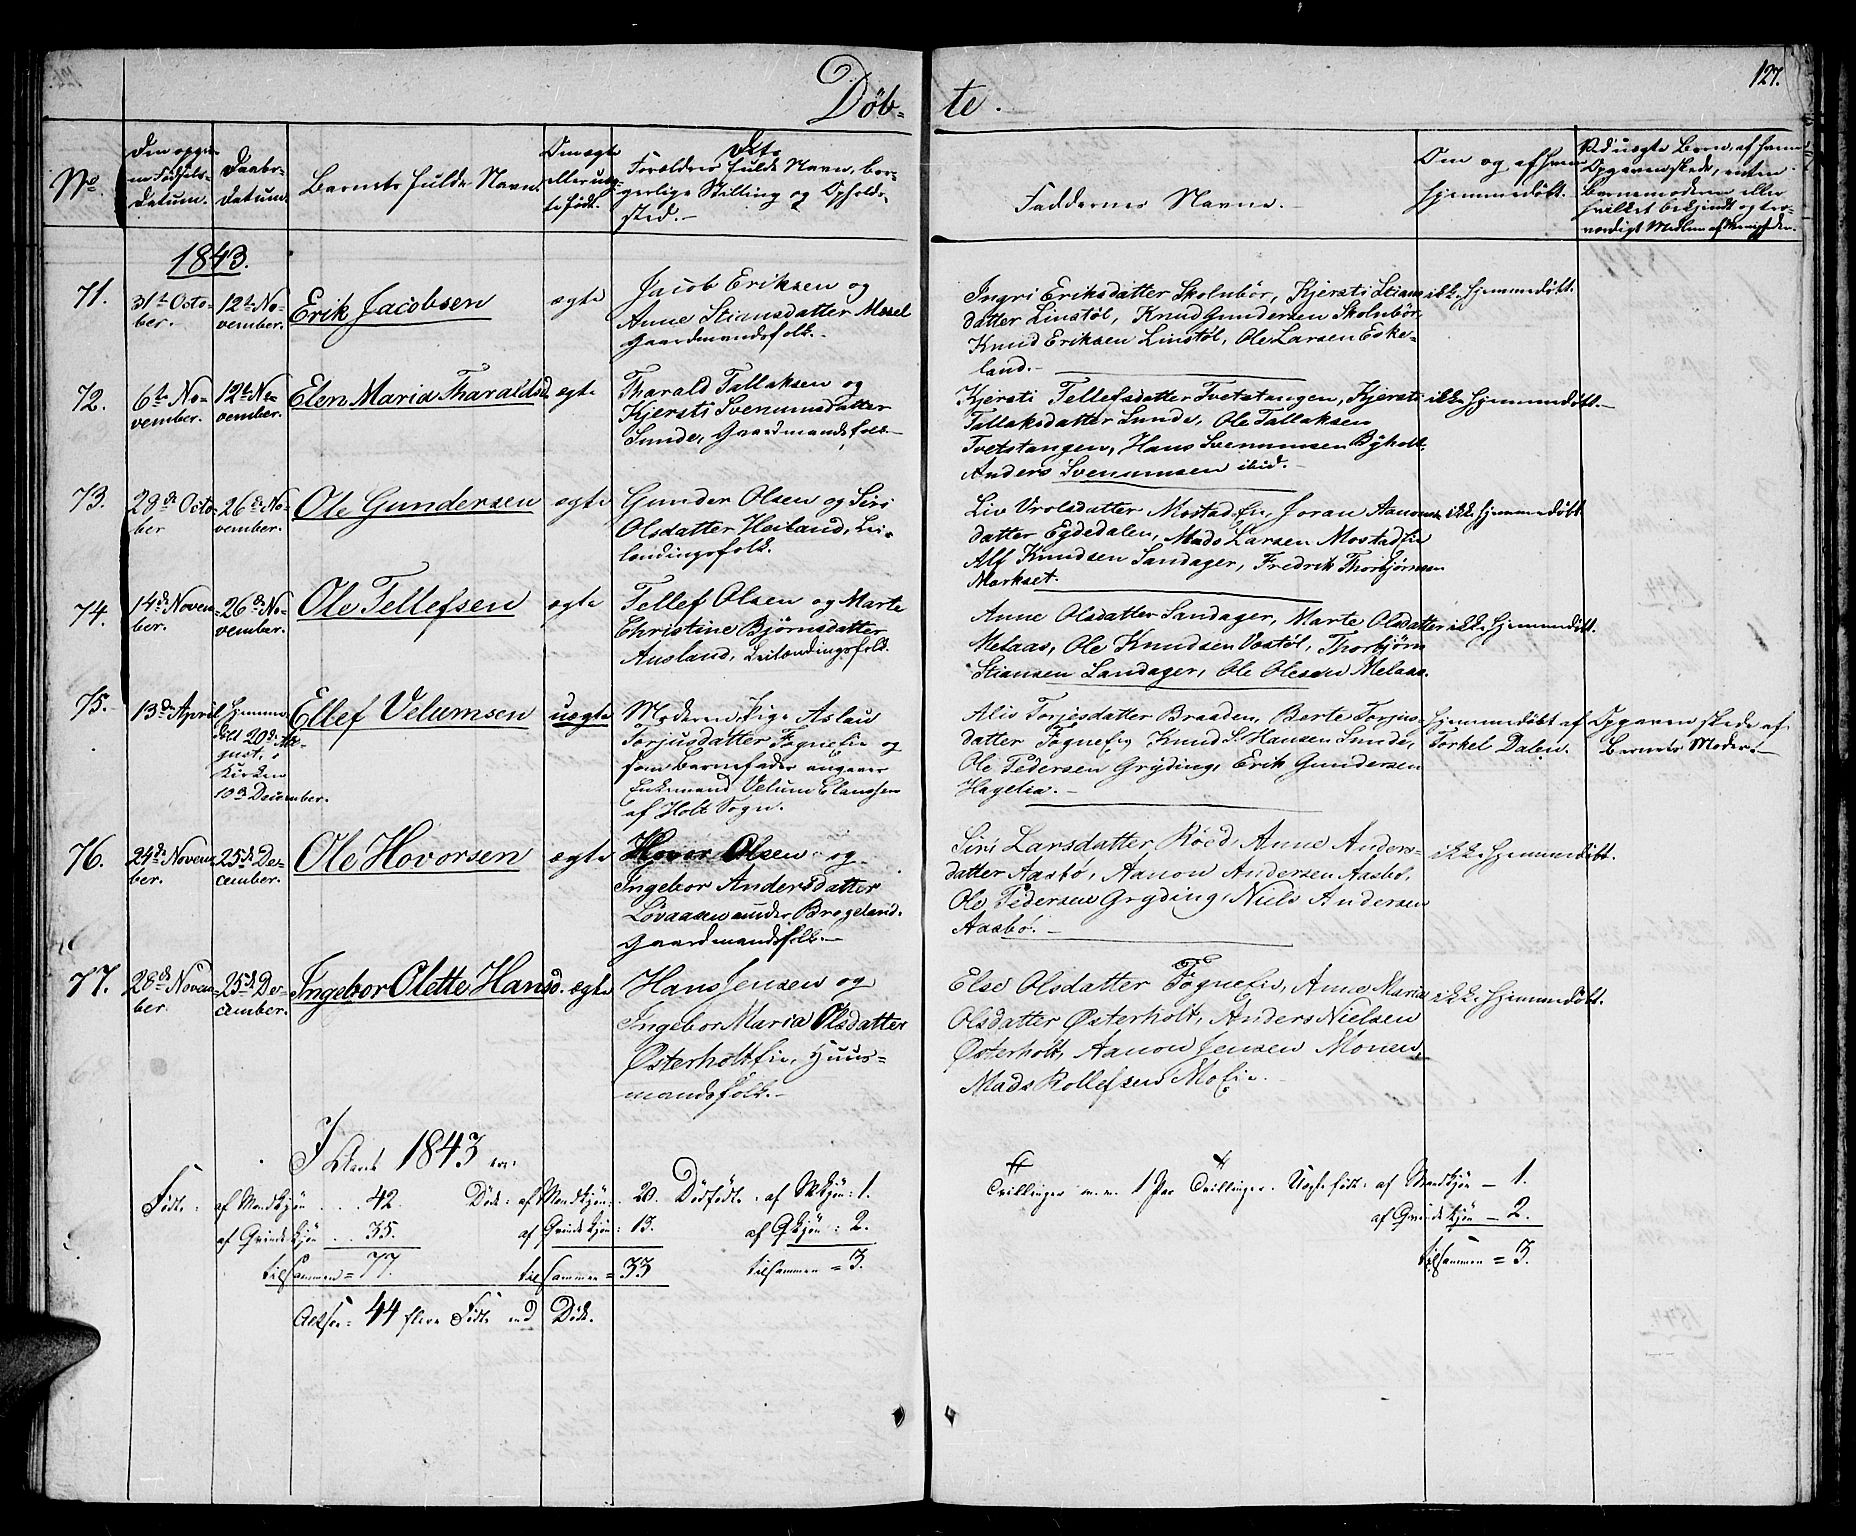 Døb-
te.
127.
No.
Den opgiv-
ne Fødsels-
datum.
Daabs-
datum.
Barnets fulde Navn.
Om ægte
eller uæg-
te født.
Dets
Forældres fulde Navn, bor-
gerlige Stilling og Opholds-
sted.-
Faddernes Navne.
Om og af hvem
hjemmedøbt.
Ved uægte Børn, af hvem
Opgaven skede, enten
Barnemoderen eller
hvilket bekjendt og tro-
værdigt Medlem af Menigheden.
1843.
71.
31te Octo-
ber.
12te No-
vember.
Erik Jacobsen
ægte
Jacob Eriksen og
Anne Stiansdatter Mosel
Gaardmandsfolk.
Ingri Eriksdatter Skolnbör, Kjersti Stians
datter Linstøl, Knud Gundersen Skolnbör,
Knud Eriksen Linstøl, Ole Larsen Eske-
land.-
ikke hjemmedøbt.
72.
6te No-
vember.
12te No-
vember.
Elen Maria Tharaldsd.
ægte
Tharald Tallaksen og
Kjersti Svenumsdatter
Sunde, Gaardmandsfolk
Kjersti Tellefsdatter Tvetstangen, Kjersti
Tallaksdatter Sunde, Ole Tallaksen
Tvetstangen, Hans Svenumsen Byholt
Anders Svenumsen ibid.-
ikke hjemmedøbt.-
73.
28de Octo-
ber
26de No-
vember.
Ole Gundersen
ægte
Gunder Olsen og Siri
Olsdatter Heiland, Lei-
lændingsfolk.
Liv Vrolsdatter Mostadeie, Joran Aanons-
datter Egdedalen, Mads Larsen Mostadeie
Alf Knudsen Sandager, Fredrik Thorbjørnsen
Markset.
ikke hjemmedøbt
74.
14de Novem-
ber.
26de No-
vember.
Ole Tellefsen
ægte
Tellef Olsen og Marte
Christine Bjørnsdatter
Ausland, Leilændingsfolk.
Anne Olsdatter Sandager, Marte Olsdatter
Melaas, Ole Knudsen Vostøl, Thorbjørn
Stiansen Sandager, Ole Olesen Melaas.
ikke hjemmedøbt.
75.
13de April
hjemme-
døbt 20de Au-
gust, i
Kirken
10de December.
Ellef Velumsen
uægte
Moderen Pige Aslau
Torjusdatter Fogneeie og
som Barnefader angaves
Enkemand Velum Clausen
af Holt Sogn.
Alis Torjesdatter Braaden, Berte Torjus-
datter Fogneeie, Knud S. Hansen Sunde,
Ole Pedersen Gryding, Erik Gundersen
Hagelia.-
hjemmedøbt af
Torkel Dalen.
Opgaven skede af
Barnets Moder.-
76.
24de Novem-
ber.
25de De-
cember.
Ole Hovorsen
ægte
Hovor Olsen og
Ingebor Andersdatter
Løvaasen under Brogeland.
Gaardmandsfolk.-
Siri Larsdatter Röed, Anne Anders-
datter Aasbø, Aanon Andersen Aasbø,
Ole Pedersen Gryding, Niels Andersen
Aasbø.-
ikke hjemmedøbt.
77.
28de Novem-
ber.
25de De-
cember.
Ingebor Olette Hansd.
ægte
Hans Jensen og
Ingebor Maria Olsdatter
Østerholteie, Huus-
mandsfolk.-
Else Olsdatter Fogneeie, Anne Maria
Olsdatter Østerholt, Anders Nielsen
Østerholt, Aanon Jensen Monen,
Mads Rollefsen Moeie.
ikke hjemmedøbt.
I Aaret 1843 er:
Fødte: af Mandkjøn ... 42. Døde: af Mandkjøn: 20. Dødfødte: af Mkjøn: 1.
Tvillinger m. m. 1 Par Tvillinger. Uægte født: af Mandkjøn - 1.
af Qvindekjøn ... 35. af Qvindekjøn: 13. af Qkjøn: 2.
af Qvindekjøn - 2.
tilsammen = 77. tilsammen = 33 tilsammen = 3.
tilsammen = 3.
Altsaa 44 flere Fødte end Døde.